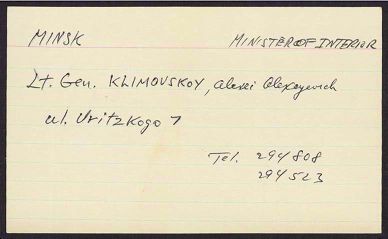 MINSK MINISTER OF INTERIOR
Lt. Gen. KLIMOVSKOY, Alexei Alexeyevich
ul. Uritzkogo 7
Tel. 294808
294523